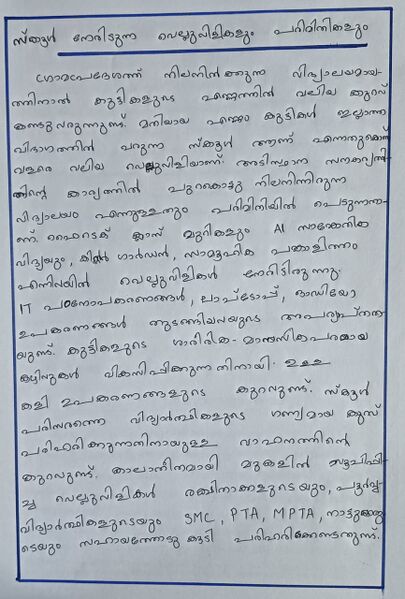 സ്കൂൾ നേരിടുന്ന വെല്ലുവിളികളും പരിമിതികളും
ഗ്രാമപ്രദേശത്ത് നിലനിൽക്കുന്ന വിദ്യാലയമായ-
തിനാൽ കുട്ടികളുടെ എണ്ണത്തിൽ വലിയ കുറവ്
കണ്ടുവരുന്നുണ്ട്. മതിയായ എണ്ണം കുട്ടികൾ ഇല്ലാത്ത
വിഭാഗത്തിൽ വരുന്ന സ്കൂൾ ആണ് എന്നതുകൊണ്ട്
വളരെ വലിയ വെല്ലുവിളിയാണ്. അടിസ്ഥാന സൗകര്യത്തി-
ന്റെ കാര്യത്തിൽ പുറകോട്ടു നിലനിന്നിരുന്ന
വിദ്യാലയം എന്നുള്ളതും പരിമിതിയിൽ പെടുന്നതാ-
ണ്. ഹൈടെക് ക്ലാസ് മുറികളും AI സാങ്കേതിക
വിദ്യയും, കിഡ്സ് ഗാർഡൻ, സാമൂഹിക പങ്കാളിത്തം
എന്നിവയിൽ വെല്ലുവിളികൾ നേരിടിരുന്നു.
IT പഠനോപകരണങ്ങൾ, ലാപ്ടോപ്പ്, ഓഡിയോ
ഉപകരണങ്ങൾ തുടങ്ങിയവയുടെ അപര്യാപ്തത-
യുണ്ട്. കുട്ടികളുടെ ശാരീരിക-മാനസികപരമായ
കഴിവുകൾ വികസിപ്പിക്കുന്നതിനായി ഉള്ള
കളി ഉപകരണങ്ങളുടെ കുറവുണ്ട്. സ്കൂൾ
പരിസരത്തെ വിദ്യാർത്ഥികളുടെ ഗണ്യമായ കുറവ്
പരിഹരിക്കുന്നതിനായുള്ള വാഹനത്തിന്റെ
കുറവുണ്ട്. കാലാനീതമായി മുകളിൽ സൂചിപ്പി-
ച്ച വെല്ലുവിളികൾ രക്ഷിതാക്കളുടെയും, പൂർവ്വ
വിദ്യാർത്ഥികളുടെയും SMC, PTA, MPTA, നാട്ടുകാരു
ടെയും സഹായത്തോടു കൂടി പരിഹരിക്കേണ്ടതുണ്ട്.